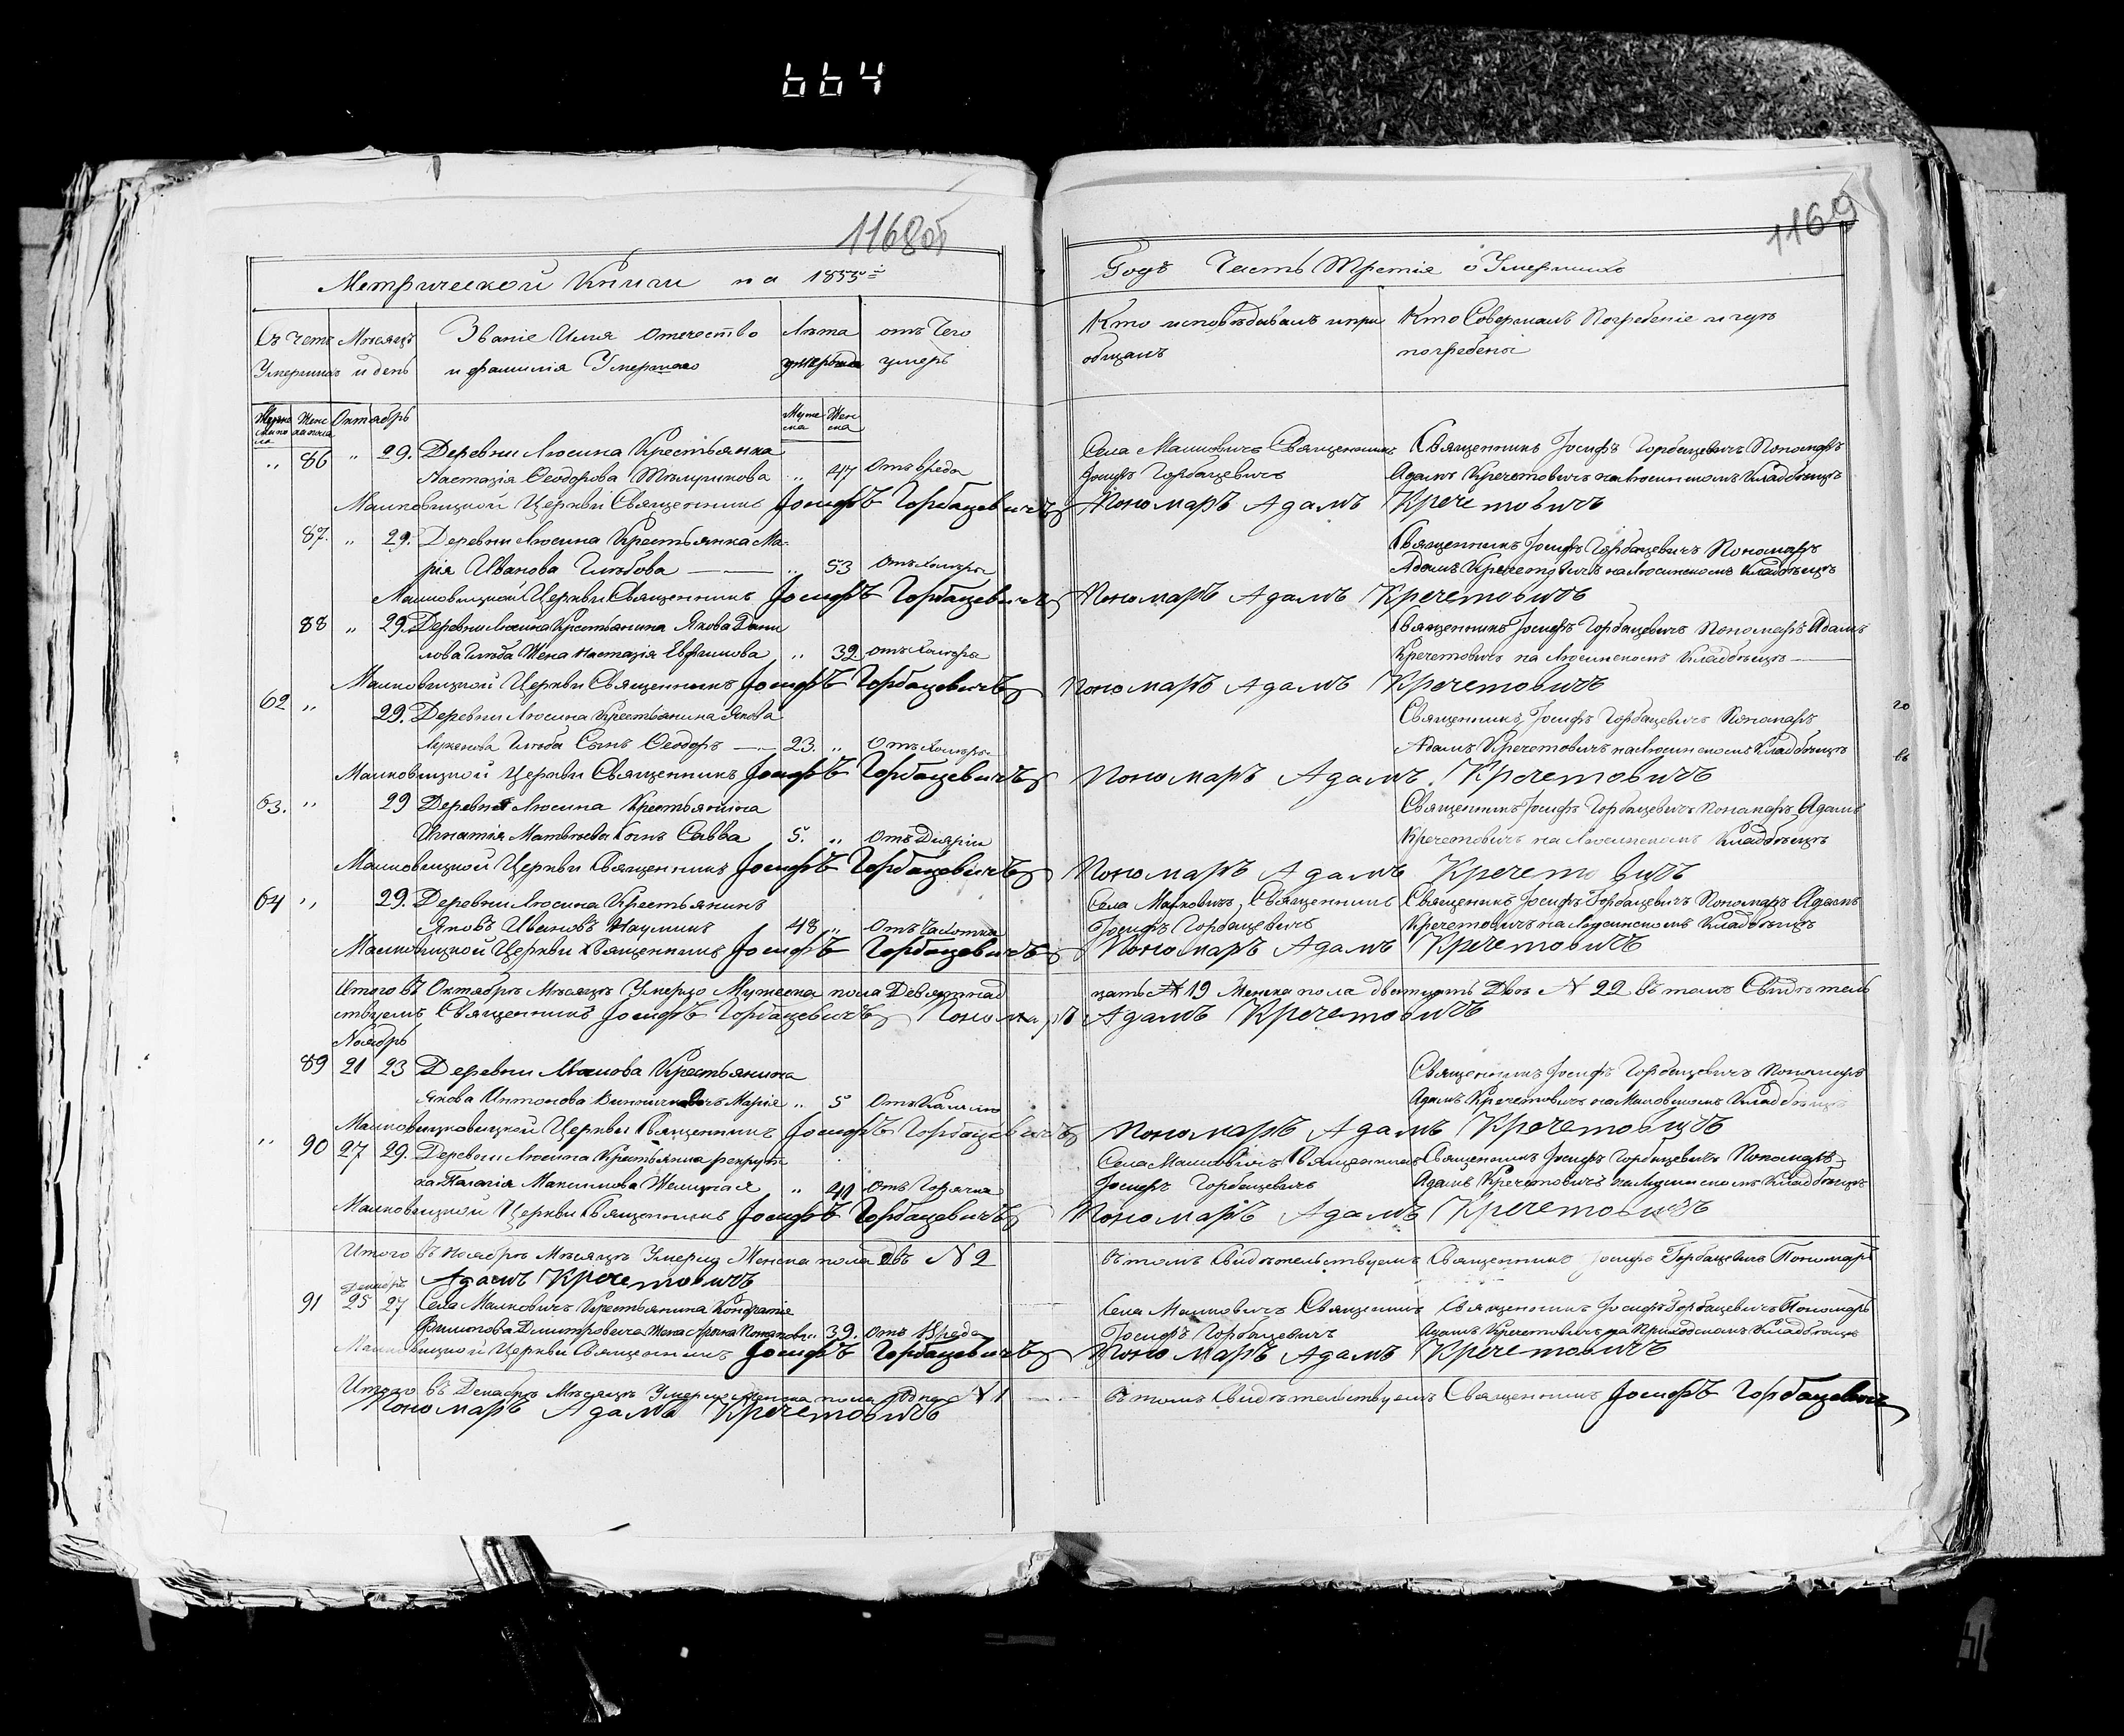 664
1168об
1169
Метрической Книги на 1855й
Годъ Часть Третія о Умершихъ
Счетъ Умершихъ
Мѣсяцъ и день
Званіе Имя Отечество и фамилія Умершаго
Лѣта умершаго
отъ Чего умеръ
Кто исповѣдывалъ и при общалъ
Кто Совершалъ Погребеніе и гдѣ погребены
Октябрь
„ 86 „ 29. Деревни Люсина Крестьянка
Настазія Ѳеодорова „ 47 Отъ вреда
Села Малковичъ Священникъ Іосифъ Горбацевичъ
Священникъ Іосифъ Горбацевичъ Пономарь
Адамъ Кречетовичъ на Люсинскомъ Кладбищѣ
Малковицкой Церкви Священникъ Іосифъ Горбацевичъ Пономарь Адамъ Кречетовичъ
87. „ 29. Деревни Люсина Крестьянка Ма-
рія Иванова Глѣбова „ 53 Отъ Холеры
Священникъ Іосифъ Горбацевичъ Пономарь
Адамъ Кречетовичъ на Люсинскомъ Кладбищѣ
Малковицкой Церкви Священникъ Іосифъ Горбацевичъ Пономарь Адамъ Кречетовичъ
88 „ 29. Деревни Люсина Крестьянина Якова Дани
лова Глѣба Жена Настазія Евфимова „ 39. отъ Холеры
Священникъ Іосифъ Горбацевичъ Пономарь Адамъ
Кречетовичъ на Люсинскомъ Кладбищѣ
Малковицкой Церкви Священникъ Іосифъ Горбацевичъ Пономарь Адамъ Кречетовичъ
62 „ 29. Деревни Люсина Крестьянина Якова
Глѣба Сынъ Ѳеодоръ 23. „ Отъ Холеры
Священникъ Іосифъ Горбацевичъ Пономарь
Адамъ Кречетовичъ на Люсинскомъ Кладбищѣ
го
въ
Малковицкой Церкви Священникъ Іосифъ Горбацевичъ Пономарь Адамъ Кречетовичъ
63. „ 29 Деревни Люсина Крестьянина
Игнатія Матвѣева Сынъ Савва 5. „ Отъ Діяріи
Священникъ Іосифъ Горбацевичъ Пономарь Адамъ
Кречетовичъ на Люсинскомъ Кладбищѣ
Малковицкой Церкви Священникъ Іосифъ Горбацевичъ Пономарь Адамъ Кречетовичъ
64 „ 29. Деревни Люсина Крестьянинъ
Яковъ Ивановъ Наумикъ 48 „ Отъ Чахотки
Села Малковичъ Священникъ Іосифъ Горбацевичъ
Священникъ Іосифъ Горбацевичъ Пономарь Адамъ
Кречетовичъ на Люсинскомъ Кладбищѣ
Малковицкой Церкви Священникъ Іосифъ Горбацевичъ Пономарь Адамъ Кречетовичъ
Итого въ Октябрѣ Мѣсяцѣ Умерло Мужеска пола Девятнад
цать № 19 Женска пола двадцать Двѣ № 22 въ томъ Свидѣтель
ствуемъ Священникъ Іосифъ Горбацевичъ Пономарь Адамъ Кречетовичъ
Ноябрь
89 21 23 Деревни Крестьянина
Якова Антонова Дочь Марія „ 5 Отъ Кашлю
Священникъ Іосифъ Горбацевичъ Пономарь
Адамъ Кречетовичъ на Кладбищѣ
Священникъ Іосифъ Горбацевичъ Пономарь Адамъ Кречетовичъ
„ 90 27 29. Деревни Люсина Крестьянка рекрут
ка Палагія Максимова „ 41 Отъ Горячки
Села Малковичъ Священникъ Іосифъ Горбацевичъ
Священникъ Іосифъ Горбацевичъ Пономарь
Адамъ Кречетовичъ на Люсинскомъ Кладбищѣ
Малковицкой Церкви Священникъ Іосифъ Горбацевичъ Пономарь Адамъ Кречетовичъ
Итого въ Ноябрѣ Мѣсяцѣ Умерло Женска пола двѣ № 2 въ томъ Свидѣтельствуемъ Священникъ Іосифъ Горбацевичъ Пономарь
Адамъ Кречетовичъ
Декабрь
91 25 27 Села Малковичъ Крестьянина Кондратія
Филипова Дмитровича Жена „ 39. отъ Вреда
Села Малковичъ Священникъ Іосифъ Горбацевичъ
Священникъ Іосифъ Горбацевичъ Пономарь
Адамъ Кречетовичъ на Приходскомъ Кладбищѣ
Малковицкой Церкви Священникъ Іосифъ Горбацевичъ Пономарь Адамъ Кречетовичъ
Итого въ Декабрѣ Мѣсяцѣ Умерло Женска пола Одна № 1 въ томъ Свидѣтельствуемъ Священникъ Іосифъ Горбацевичъ
Пономарь Адамъ Кречетовичъ